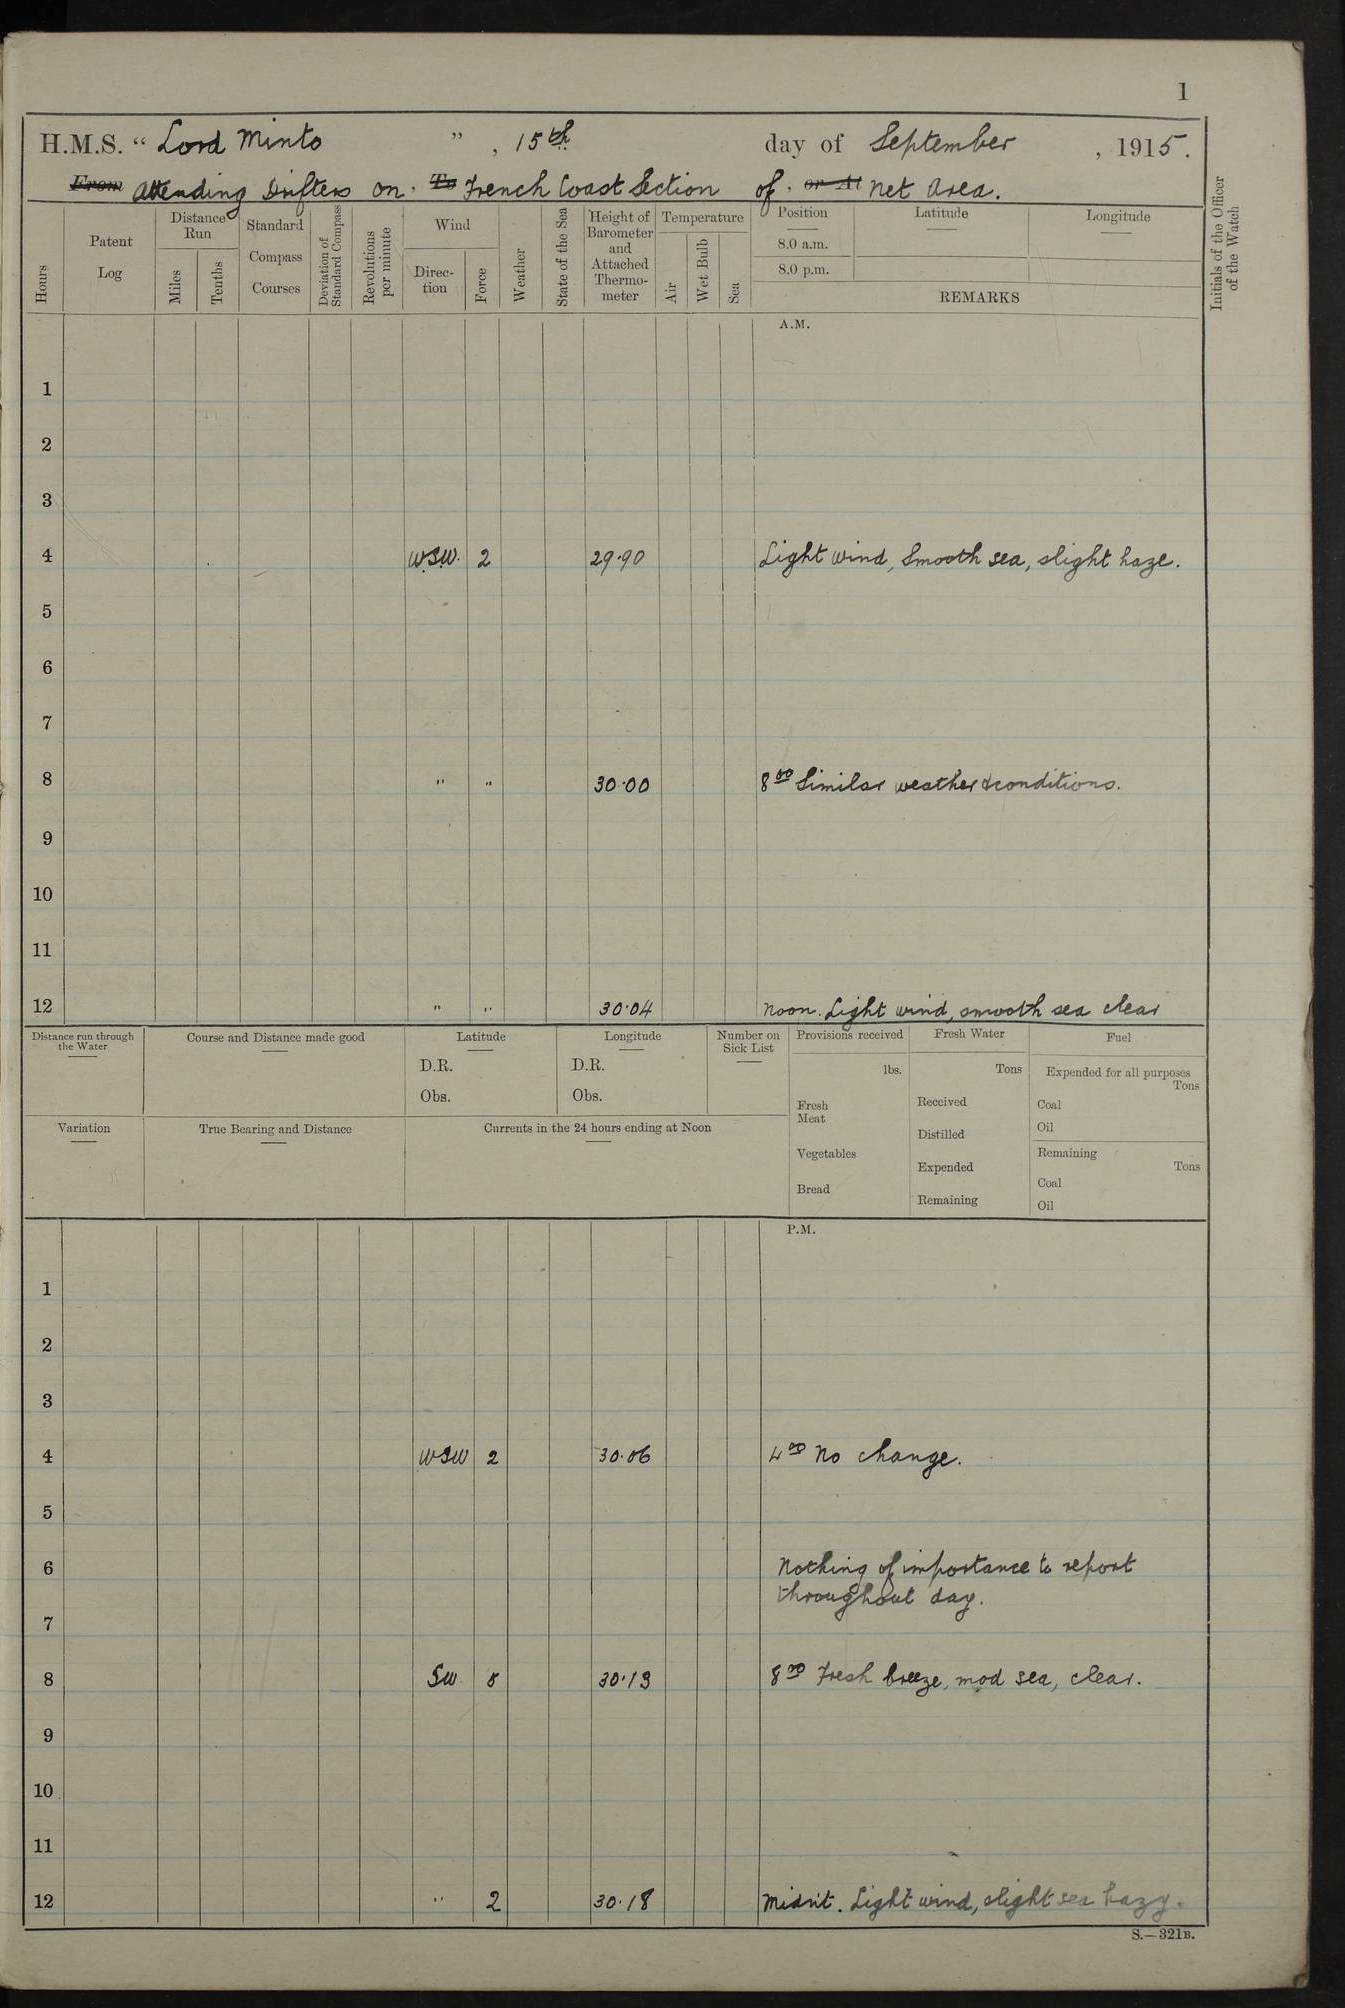 1
H.M.S. “ Lord Minto ” , 15th day of September , 1915.
From Attending Drifters on. To French Coast Section of. or At Net Area.
Hours
Patent Log
Distance Run
Miles
Tenths
Standard Compass Courses
Deviation of Standard Compass
Revolutions per minute
Wind
Direc-tion
Force
Weather
State of the Sea
Height of Barometer and Attached Thermo-meter
Temperature
Air
Wet Bulb
Sea
Position
8.0 a.m.
8.0 p.m.
Latitude
Longitude
REMARKS
Initials of the Officer of the Watch
A.M.
1
2
3
4 WSW. 2 29.90 Light wind, Smooth sea, slight haze.
5
6
7
8 " " 30.00 8 00 Similar weather & conditions.
9
10
11
12 " " 30.04 Noon. Light wind, smooth sea clear
Distance run through the Water
Course and Distance made good
Latitude
D.R.
Obs.
Longitude
D.R.
Obs.
Number on Sick List
Provisions received
lbs.
Fresh Meat
Vegetables
Bread
Fresh Water
Tons
Received
Distilled
Expended
Remaining
Fuel
Expended for all purposes
Tons
Coal
Oil
Remaining
Tons
Coal
Oil
Variation
True Bearing and Distance
Currents in the 24 hours ending at Noon
P.M.
1
2
3
4 WSW 2 30.06 4 00 No change.
5
6 Nothing of importance to report
throughout day.
7
8 SW 5 30.13 8 00 Fresh breeze, mod sea, clear.
9
10
11
12 " 2 30.18 Midnt. Light wind, slight sea hazy.
S.—321B.